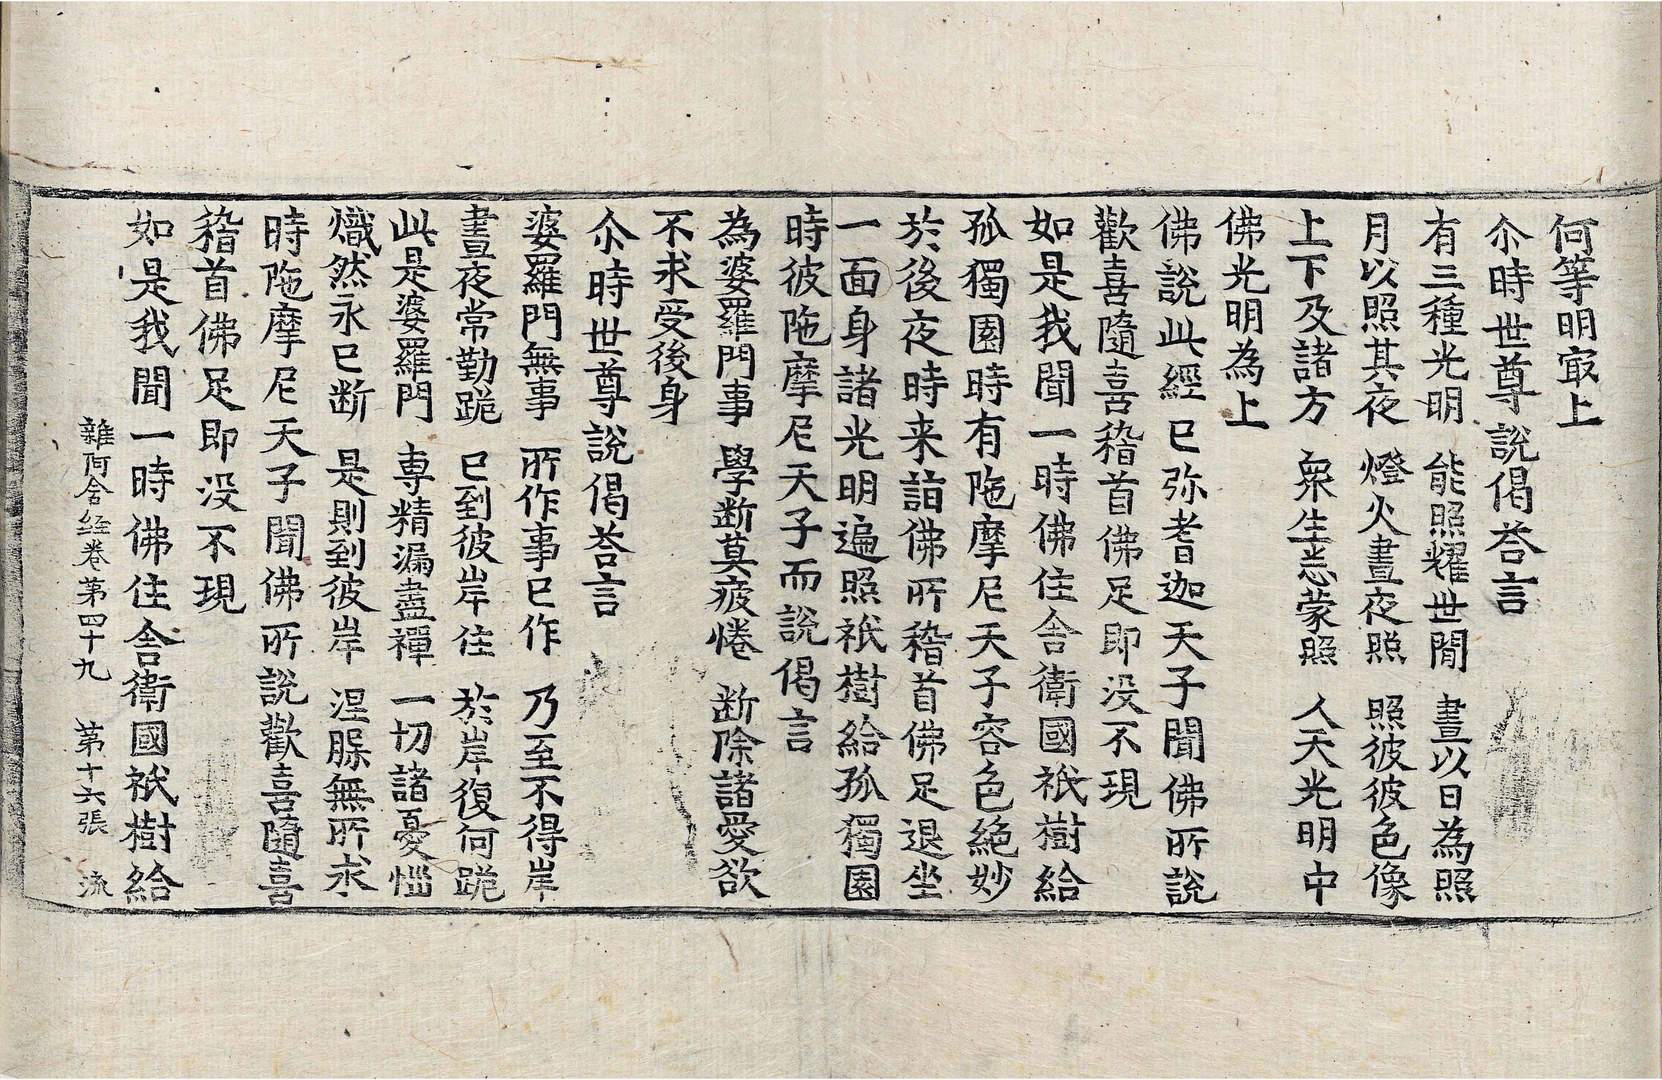 何等明㝡上
尒時世尊說偈荅言
有三種光明　能照耀世閒　晝以日為照
月以照其夜　燈火晝夜照　照彼彼色像
上下及諸方　衆生悉蒙照　人天光明中
佛光明為上
佛說此經已弥耆迦天子聞佛所說
歡喜隨喜稽首佛足即没不現
如是我聞一時佛住舎衛國祇樹給
孤獨園時有陁摩尼天子容色絶妙
於後夜時来詣佛所稽首佛足退坐
一面身諸光明遍照祇樹給孤獨園
時彼陁摩尼天子而說偈言
為婆羅門事　學断莫疲惓　断除諸愛欲
不求受後身
尒時世尊說偈荅言
婆羅門無事　所作事已作　乃至不得岸
晝夜常勤跪　已到彼岸住　於岸復何跪
此是婆羅門　専精漏盡禪　一切諸憂惱
熾然永已断　是則到彼岸　涅槃無所求
時陁摩尼天子聞佛所說歡喜隨喜
稽首佛足即没不現
如是我聞一時佛住舎衛國祇樹給
雜阿含経卷第四十九　第十六張　流